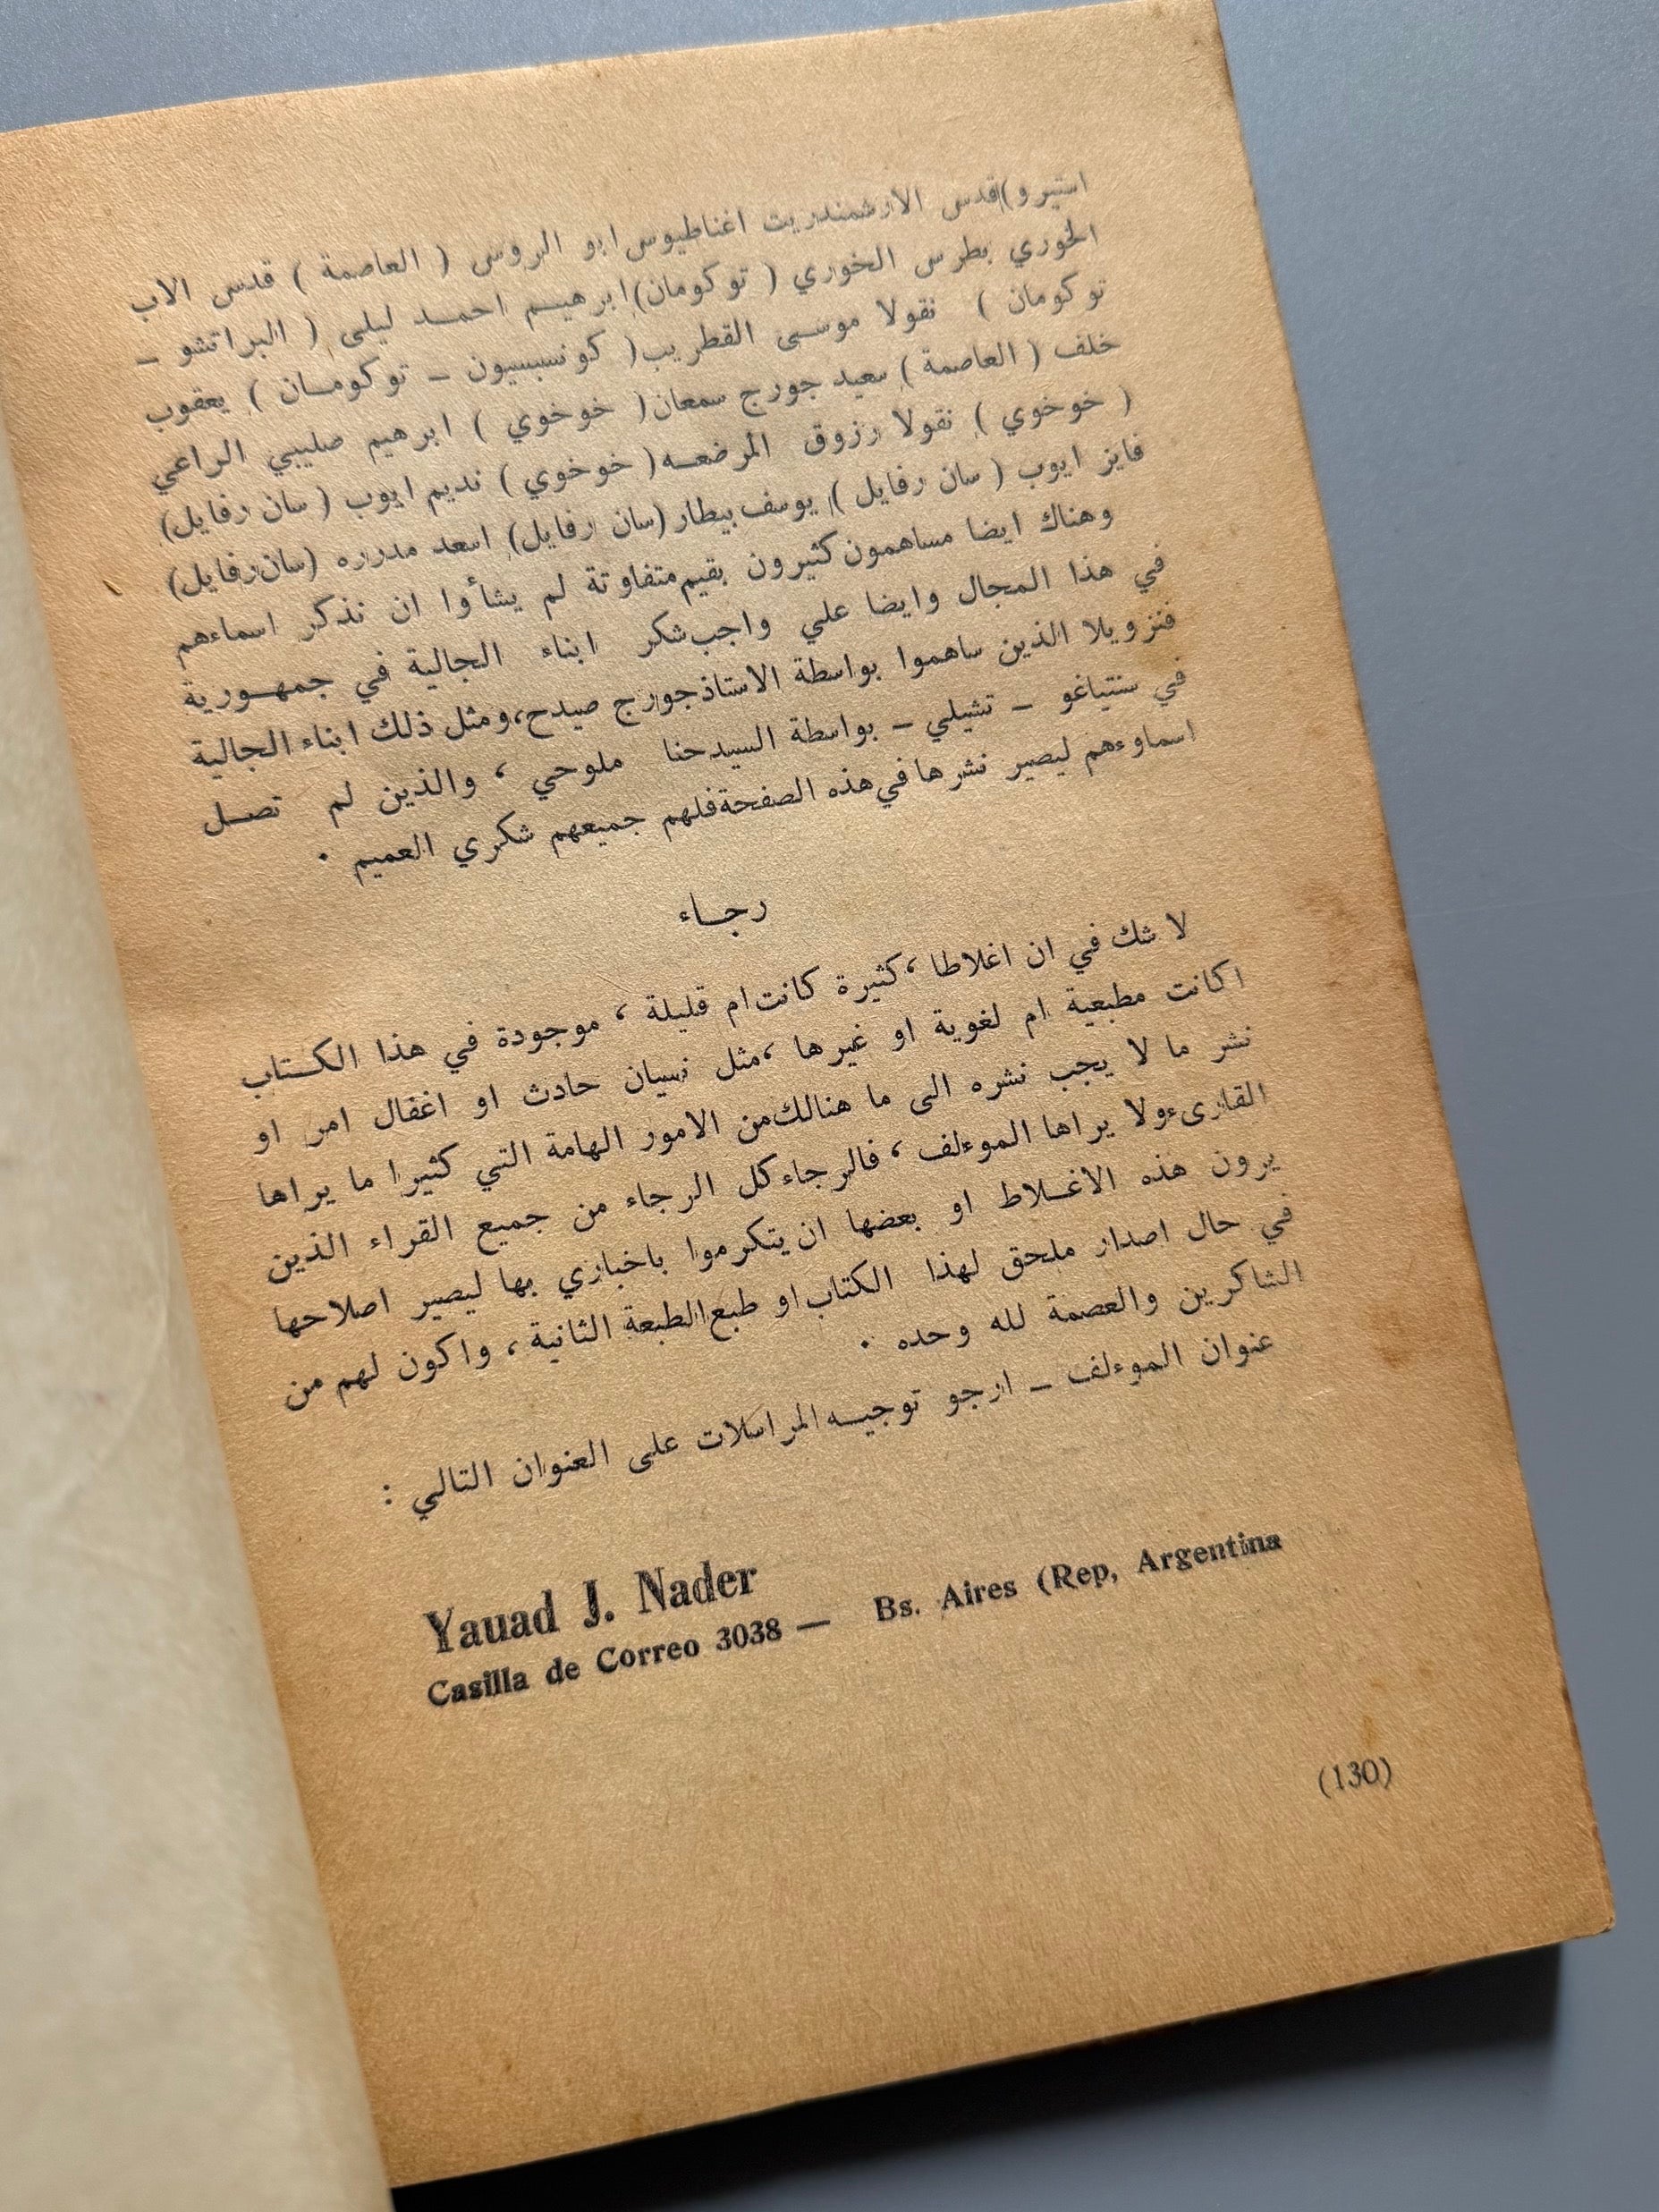 استيرو) قدس الارشمندريت اغناطيوس ابو الروس ( العاصمة ) قدس الاب
الخوري بطرس الخوري ( توكومان) ابرهيـم احمـد ليلى ( البراتشو –
توكومان ) نقولا موسى القطريب( كونسبسيون – توكومـان ) يعقوب
خلف ( العاصمة ) سعيد جورج سمعان( خوخوي ) ابرهيم صليبي الراعي
( خوخوي ) نقولا رزوق المرضعـه( خوخوي ) نديم ايوب ( سان رفايل)
فايز ايوب ( سان رفايل ) يوسف بيطار (سان رفايل) اسعد مدرره (سان رفايل)
وهناك ايضا مساهمون كثيرون بقيم متفاوتة لم يشأوا ان نذكر اسماءهم
في هذا المجال وايضا علي واجب شكر ابناء الجالية في جمهـورية
فنزويلا الذين ساهموا بواسطة الاستاذ جورج صيدح، ومثل ذلك ابناء الجالية
في سنتياغو – تشيلي – بواسطة السيد حنا ملوحي ، والذين لم تصـل
اسماوءهم ليصير نشرها في هذه الصفحة فلهم جميعهم شكري العميم .
رجـاء
لا شك في ان اغلاطا ، كثيرة كانت ام قليلة ، موجودة في هذا الكـتاب
اكانت مطبعية ام لغوية او غيرها ، مثل نسيان حادث او اغفال امر او
نشر ما لا يجب نشره الى ما هنالك من الامور الهامة التي كثيرا ما يراها
القارىء ولا يراها الموءلف ، فالرجاء كل الرجاء من جميع القراء الذين
يرون هذه الاغـلاط او بعضها ان يتكرموا باخباري بها ليصير اصلاحها
في حال اصدار ملحق لهذا الكتاب او طبع الطبعة الثانية ، واكون لهم من
الشاكرين والعصمة لله وحده .
عنوان الموءلف – ارجو توجيـه المراسلات على العنوان التالي :
Yauad J. Nader
Casilla de Correo 3038 — Bs. Aires (Rep, Argentina
(130)